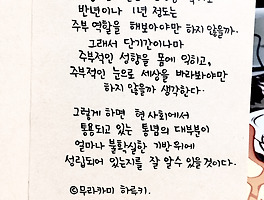 반년이나 1년 정도는
주부 역할을 해보아야만 하지 않을까.
그래서 단기간이나마
주부적인 성향을 몸에 익히고,
주부적인 눈으로 세상을 바라보아야만
하지 않을까 생각한다.
그렇게 하면 현 사회에서
통용되고 있는 통념의 대부분이
얼마나 불확실한 기반위에
성립되어 있는지를 잘 알수 있을것이다.
©무라카미 하루키.